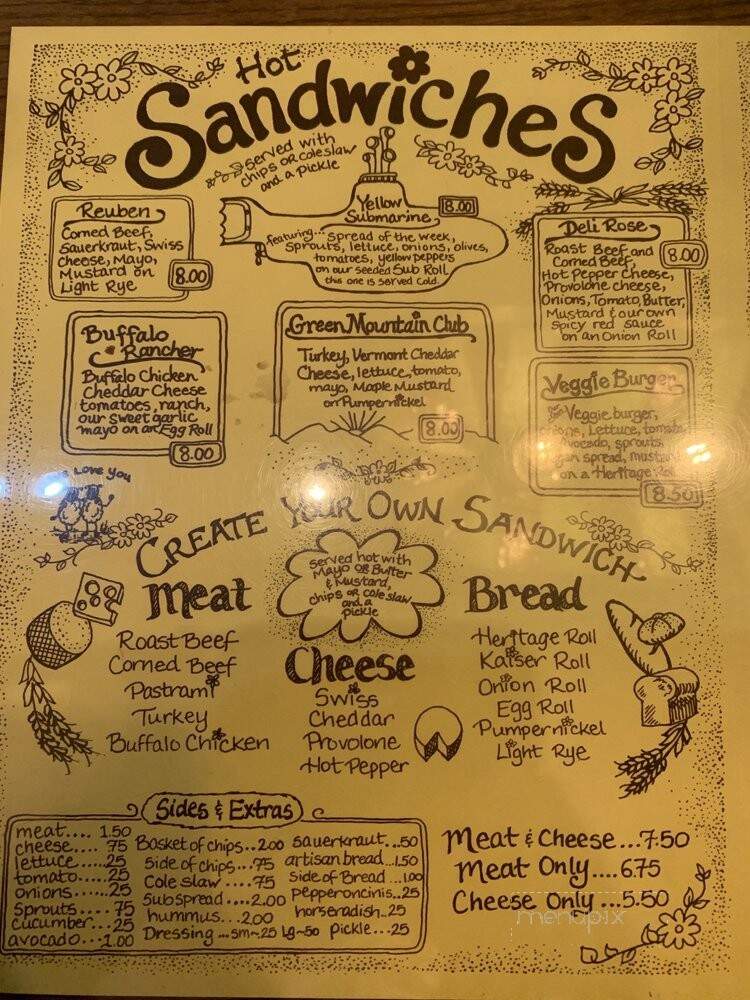 Hot
Sandwiches
served with
chips or coleslaw
and a pickle
Reuben
Corned Beef,
Sauerkraut, Swiss
Cheese, Mayo,
Mustard on
Light Rye
8.00
Yellow
Submarine
8.00
featuring... spread of the week,
sprouts, lettuce, onions, olives,
tomatoes, yellow peppers
on our seeded Sub Roll
this one is served cold.
Deli Rose
8.00
Roast Beef and
Corned Beef,
Hot Pepper Cheese,
Provolone cheese,
Onions, Tomato, Butter,
Mustard & our own
spicy red sauce
on an Onion Roll
Buffalo
Rancher
Buffalo Chicken
Cheddar Cheese
tomatoes, ranch,
our sweet garlic
mayo on an Egg Roll
8.00
Green Mountain Club
Turkey, Vermont Cheddar
Cheese, lettuce, tomato,
mayo, Maple Mustard
on Pumpernickel
8.00
Veggie Burger
Veggie burger,
Lettuce, tomato
avocado, sprouts,
spread, mustard
on a Heritage Roll
8.50
Love You
CREATE YOUR OWN SANDWICH
served hot with
Mayo OR Butter
& Mustard,
chips or coleslaw
and a
pickle
Meat
Roast Beef
Corned Beef
Pastrami
Turkey
Buffalo Chicken
Cheese
Swiss
Cheddar
Provolone
Hot Pepper
Bread
Heritage Roll
Kaiser Roll
Onion Roll
Egg Roll
Pumpernickel
Light Rye
Sides & Extras
meat.... 1.50
cheese.... 75
lettuce.....25
tomato.....25
onions......25
sprouts.... 75
cucumber...25
avocado...1.00
Basket of chips..2.00
side of chips...75
Cole slaw ....75
subspread....2.00
hummus...2.00
Dressing ...sm~.25 Lg~50
sauerkraut...50
artisan bread...1.50
Side of Bread ...1.00
pepperoncinis..25
horseradish..25
pickle...25
Meat & Cheese...7.50
Meat Only....6.75
Cheese Only...5.50
menupix